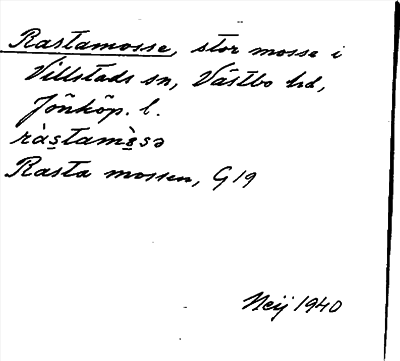 Rastamosse, stor mosse i
Villstads sn, Västbo hd,
Jönköp. l.
ràs̲tamò̲sə
Rasta mossen, G 19
Neij 1940